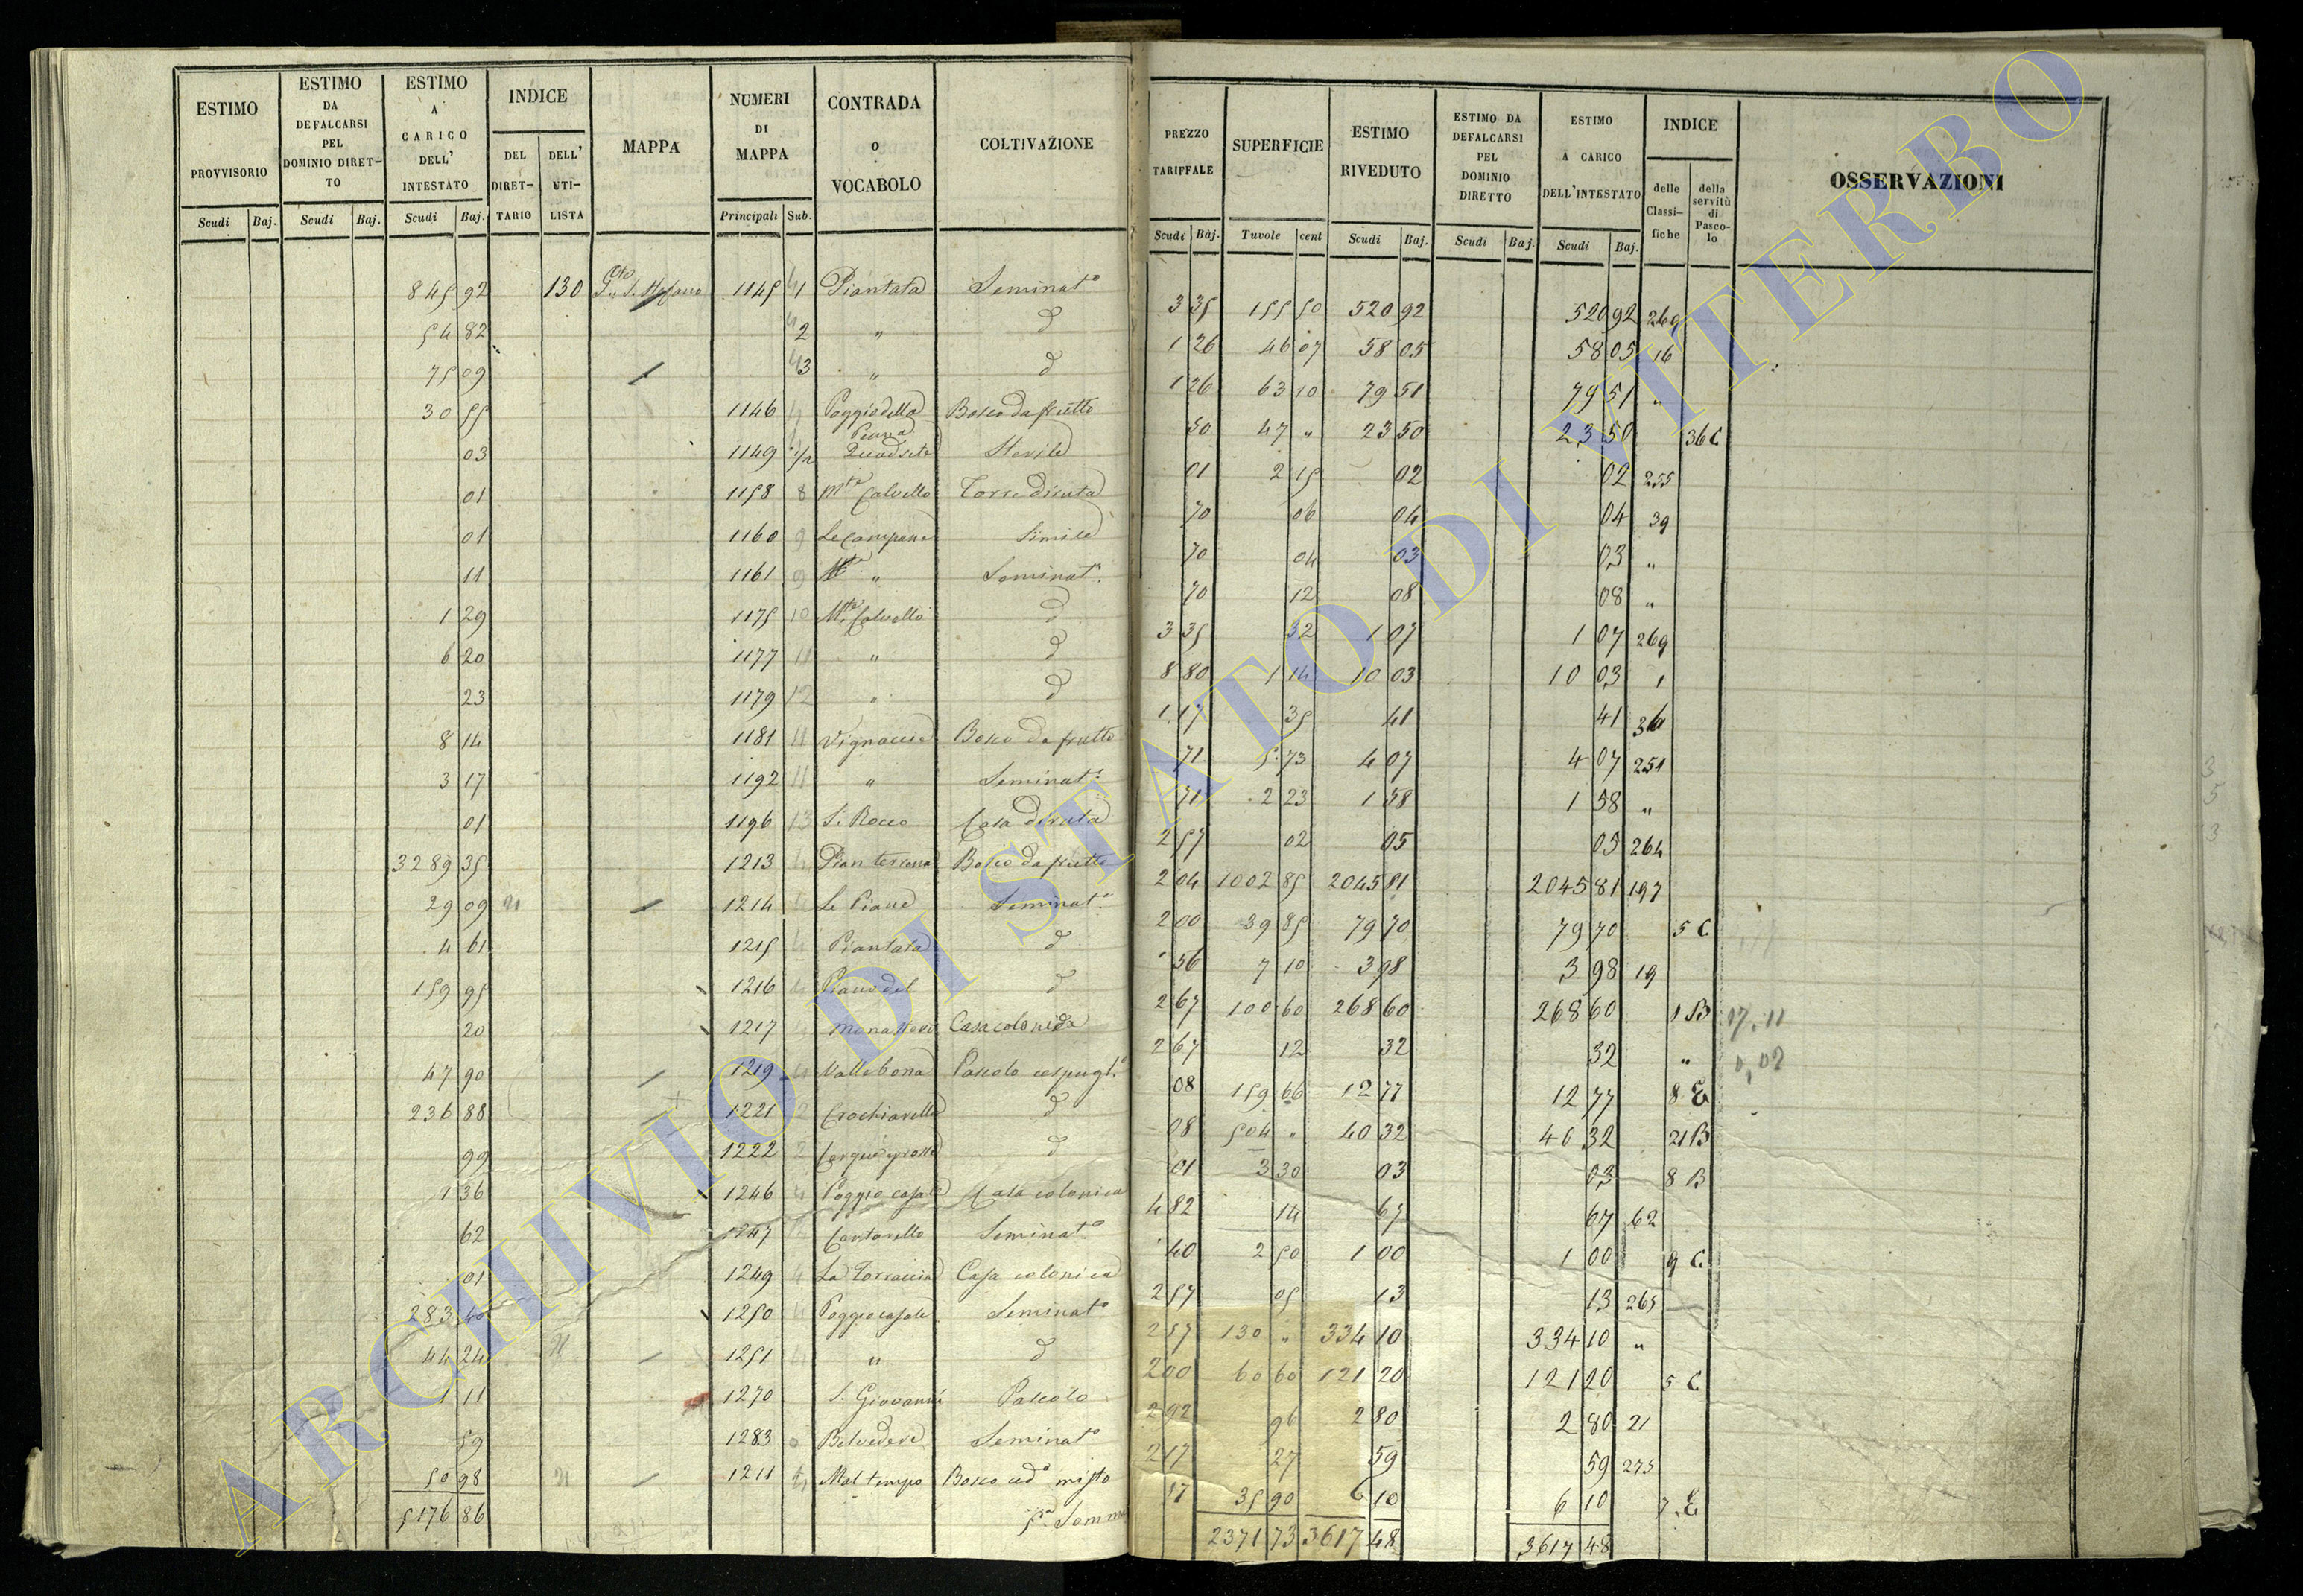 ESTIMO PROVVISORIO
ESTIMO DA DEFALCARSI PEL DOMINIO DIRETTO
ESTIMO A CARICO DELL' INTESTATO
INDICE
DEL DIRETTARIO
DELL' UTILISTA
MAPPA
NUMERI DI MAPPA
CONTRADA O VOCABOLO
COLTIVAZIONE
Scudi Baj. Scudi Baj. Scudi Baj. Principali Sub.
845 92 130 1145 1 Piantata Seminato
54 82 2 " d
75 09 3 " d
30 55 1146 Poggio della Piana Bosco da frutto
03 1149 Sterile
01 1158 8 Mte Calvello Torre diruta
01 1160 9 Le Campane Simile
11 1161 9 " Seminato
1 29 1175 10 Mte Calvello d
6 20 1177 11 " d
23 1179 12 " d
8 14 1181 11 Vignaccia Bosco da frutto
3 17 1192 11 " Seminato
01 1196 13 S. Rocco Casa diruta
3289 35 1213 Bosco da frutto
29 09 21 1214 Le Piane Seminato
4 61 1215 Piantata d
159 95 1216 Piano del d
20 1217 Monastero Casa colonica
47 90 1219 Vallebona Pascolo cespugl.
236 88 1221 2 Crochiarella d
99 1222 2 d
1 36 1246 Poggio casale Casa colonica
62 1247 Contarello Seminato
01 1249 La Torraccia Casa colonica
283 40 1250 Poggio casale Seminato
44 24 21 1251 " d
1 11 1270 S. Giovanni Pascolo
59 1283 Belvedere Seminato
50 98 21 1211 Mal tempo Bosco ced° misto
5176 86 Somma
PREZZO TARIFFALE
SUPERFICIE
ESTIMO RIVEDUTO
ESTIMO DA DEFALCARSI PEL DOMINIO DIRETTO
ESTIMO A CARICO DELL'INTESTATO
INDICE
delle Classifiche
della servitù di Pascolo
OSSERVAZIONI
Scudi Baj. Tavole cent Scudi Baj. Scudi Baj. Scudi Baj.
3 35 155 50 520 92 520 92 269
1 26 46 07 58 05 58 05 16
1 26 63 10 79 51 79 51 "
50 47 " 23 50 23 50 36 C
01 2 15 02 02 255
70 06 04 04 39
70 04 03 03 "
70 12 08 08 "
3 35 32 1 07 1 07 269
8 80 1 14 10 03 10 03 1
1 17 35 41 41
71 5 73 4 07 4 07 251
71 2 23 1 58 1 58 "
2 57 02 05 05 264
2 04 1002 85 2045 81 2045 81 197
2 00 39 85 79 70 79 70 5 C
56 7 10 3 98 3 98 19
2 67 100 60 268 60 268 60 1 B 17.11
2 67 12 32 32 " 0,02
08 159 66 12 77 12 77 8 E
08 504 " 40 32 40 32 21 B
01 3 30 03 03 8 B
4 82 14 67 67 62
40 2 50 1 00 1 00 9 C
2 57 05 13 13 265
2 57 130 " 334 10 334 10 "
2 00 60 60 121 20 121 20 5 C
2 92 96 2 80 2 80 21
2 17 27 59 59 275
17 35 90 6 10 6 10 7 E
2371 73 3617 48 3617 48
ARCHIVIO DI STATO DI VITERBO